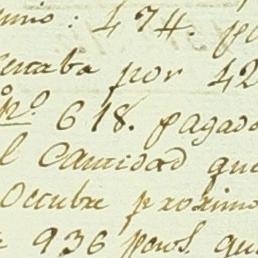 : 474. p
por 42
nº 618. pagado
l Cantidad que
Octubre proximo
e 936 pesos. qu